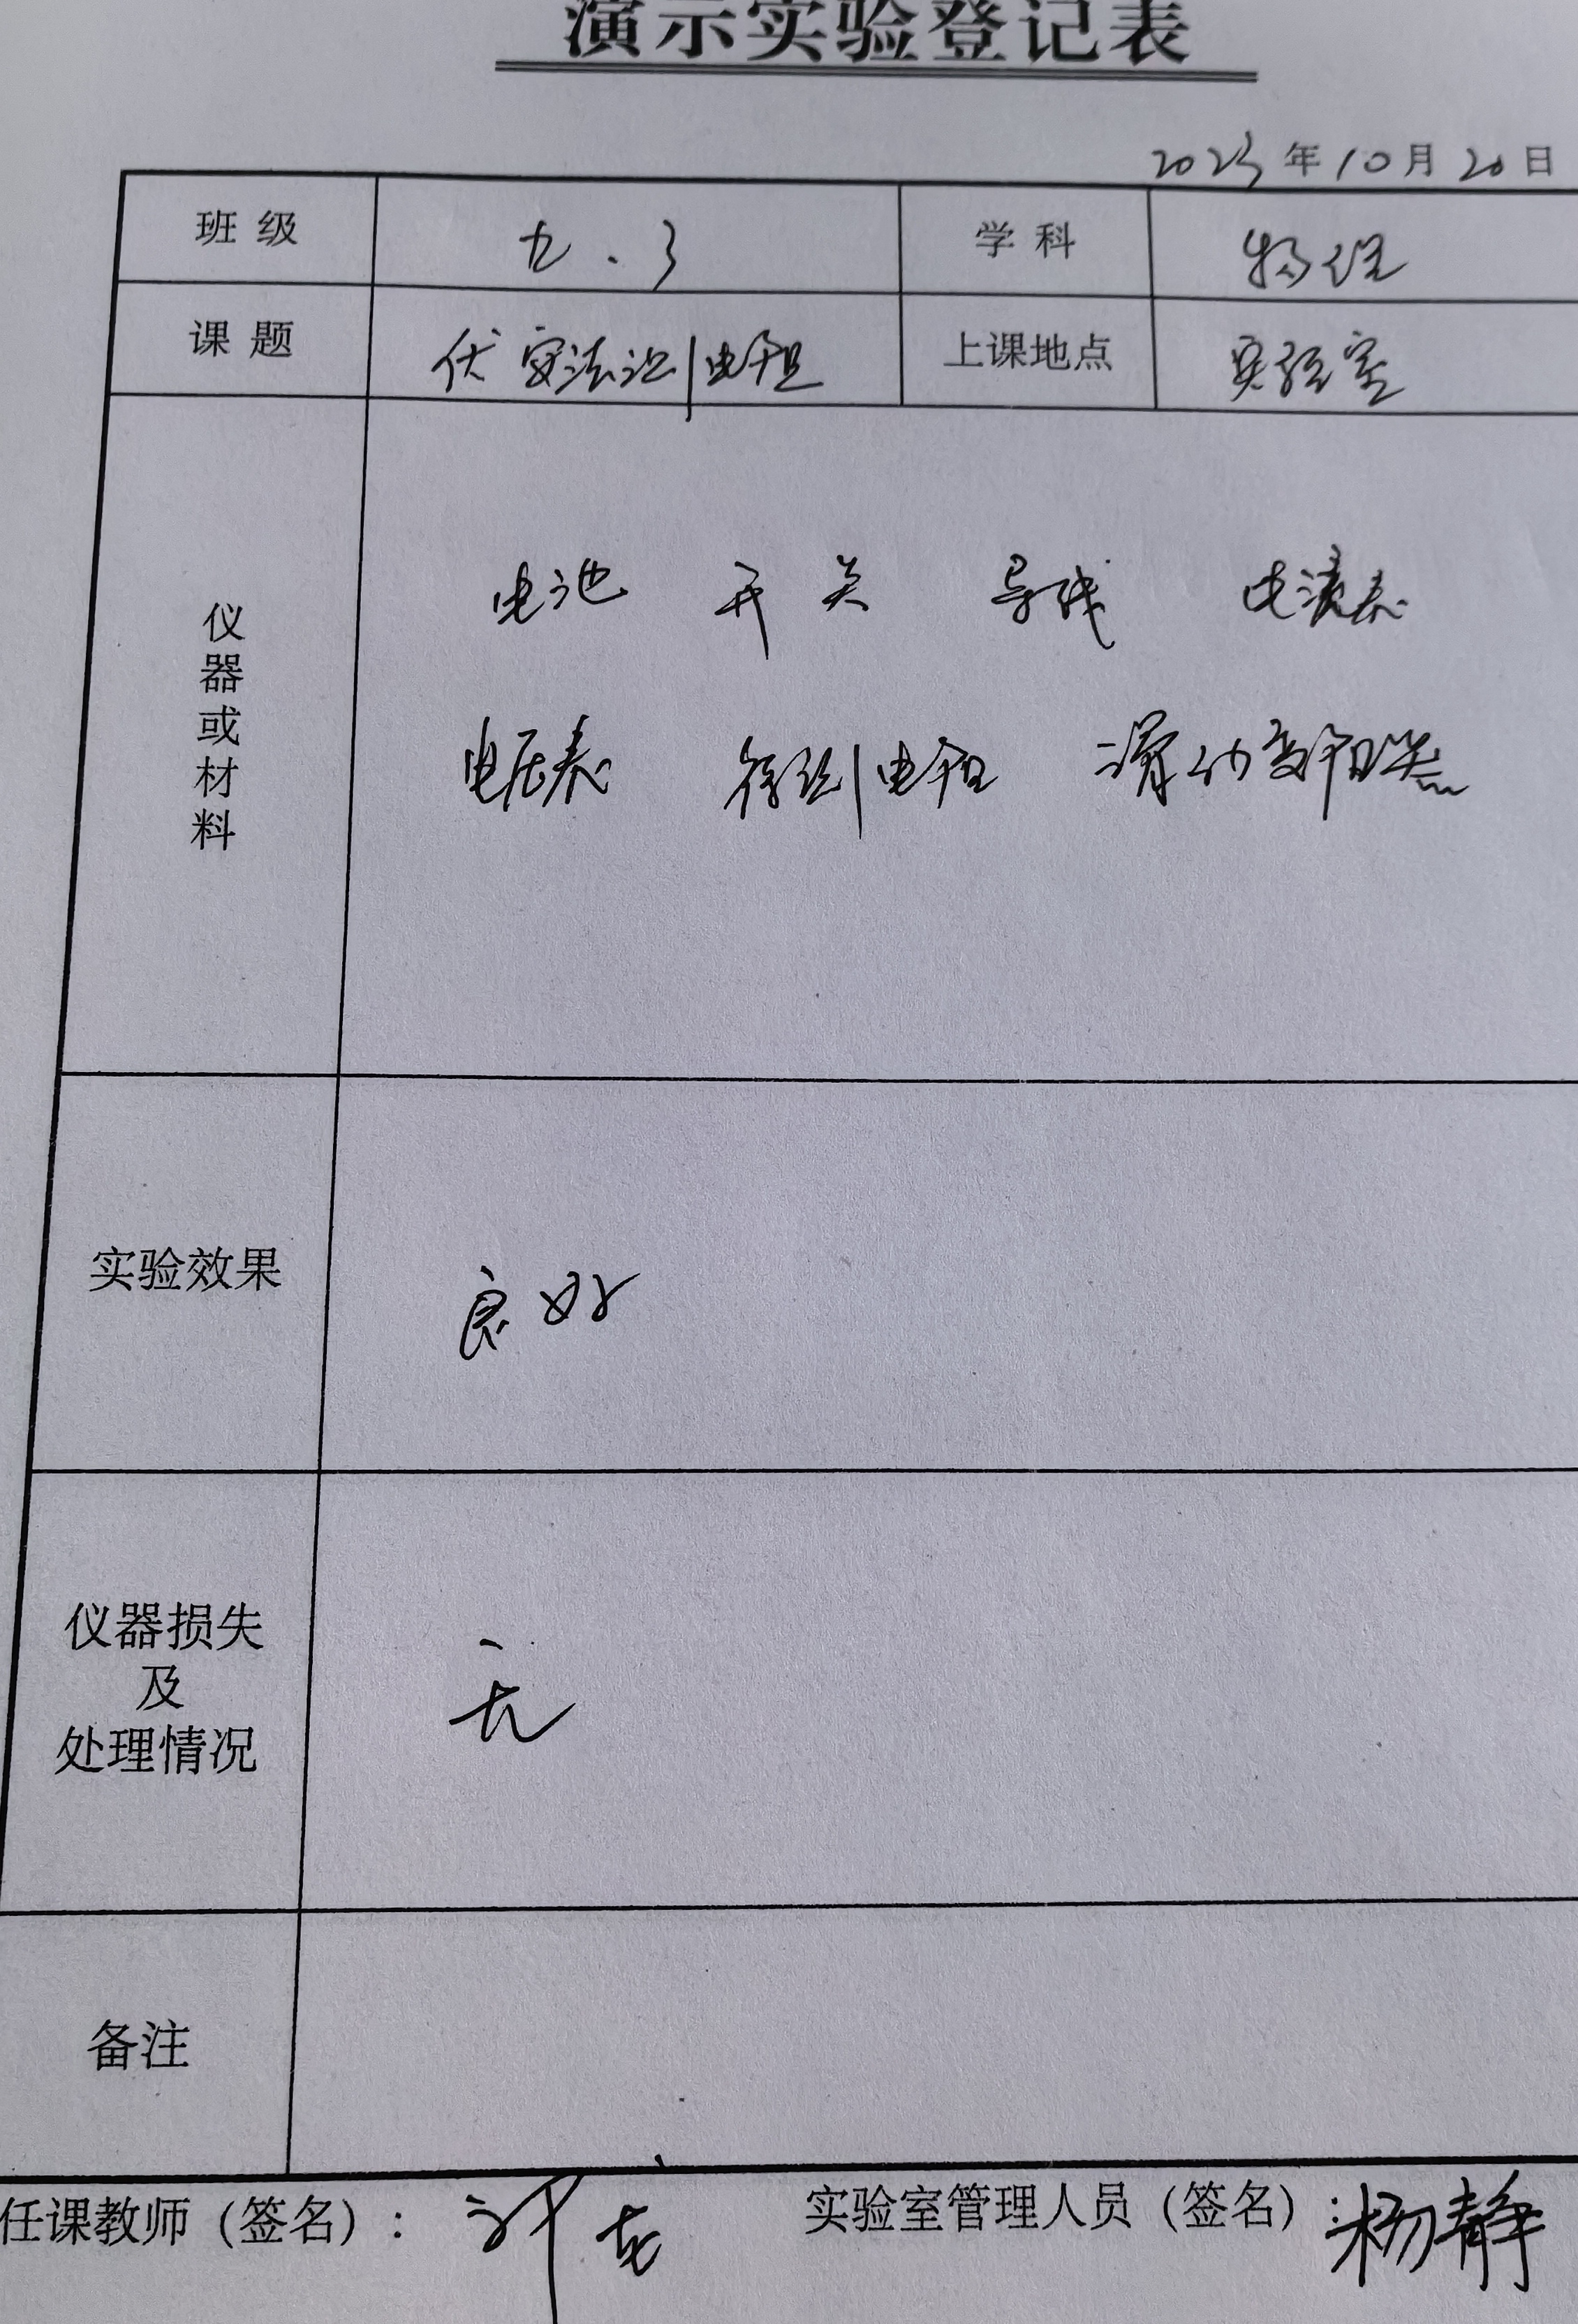 演示实验登记表
2023年10月20日
班级 九.3 学科 物理
课题 伏安法测电阻 上课地点 实验室
仪器或材料
电池 开关 导线 电流表
电压表 待测电阻 滑动变阻器
实验效果 良好
仪器损失
及
处理情况 无
备注
任课教师（签名）: 实验室管理人员（签名）: 杨静